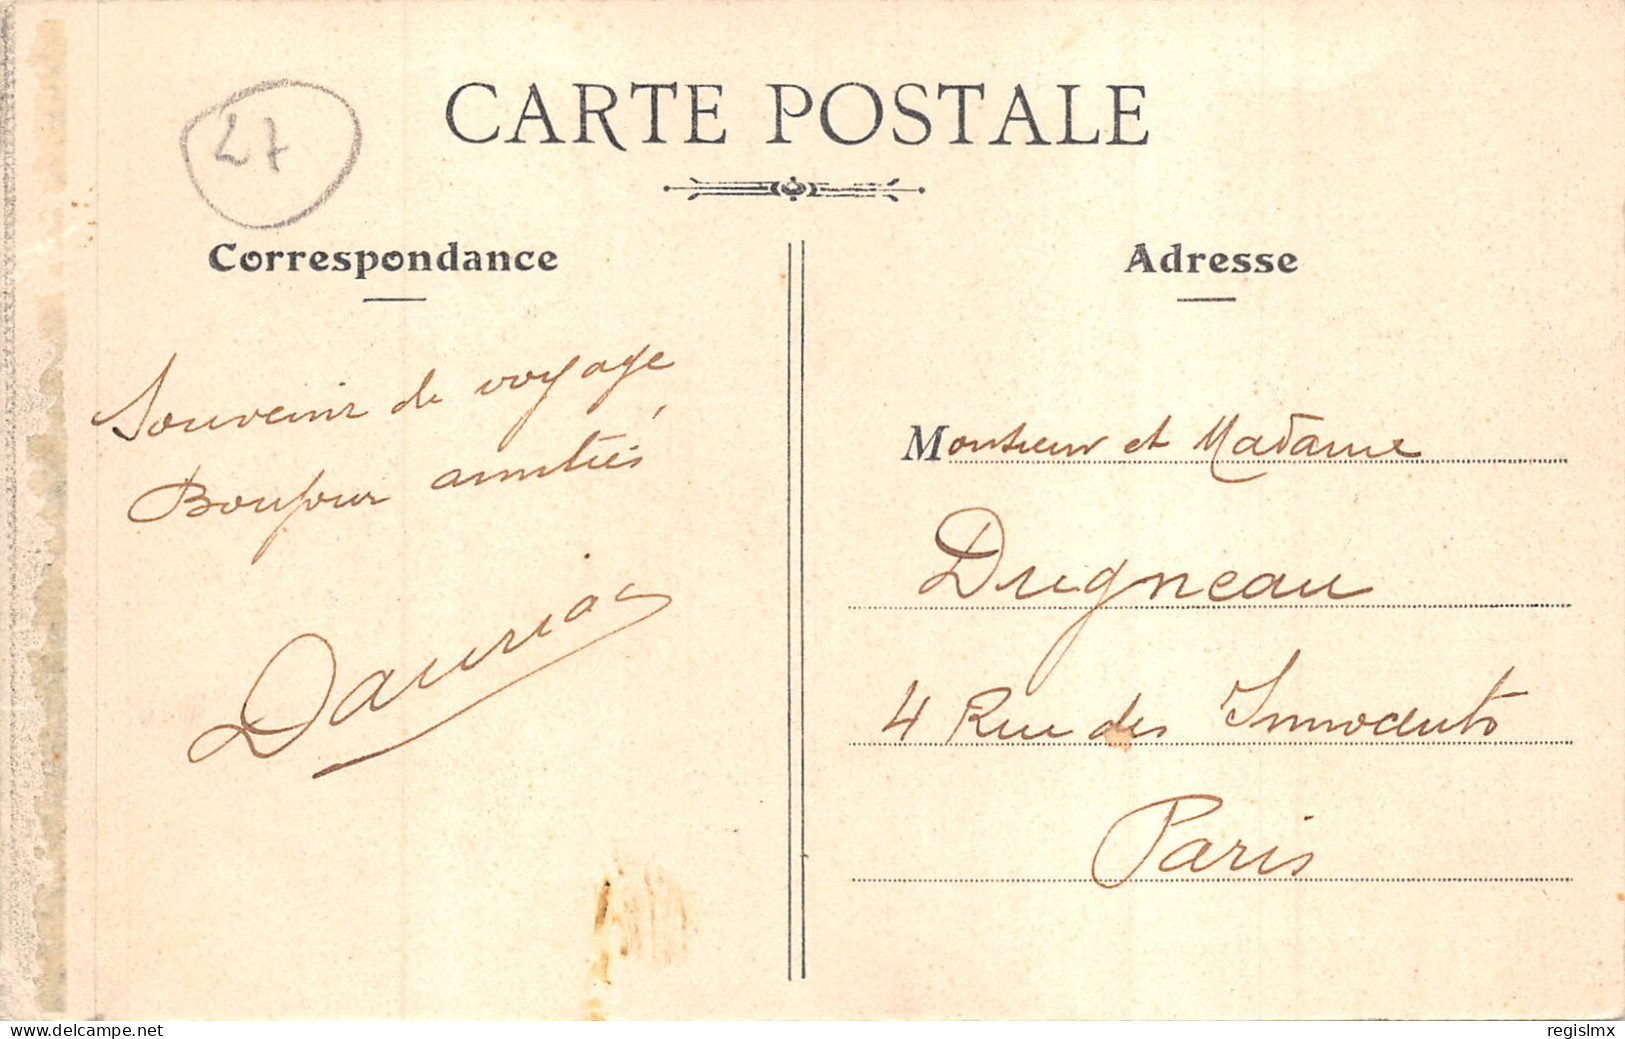 27
CARTE POSTALE
Correspondance
Adresse
Souvenir de voyage
Bonjour amitiés
Monsieur et Madame
Dugneau
4 Rue des Innocents
Paris
www.delcampe.net
regislmx